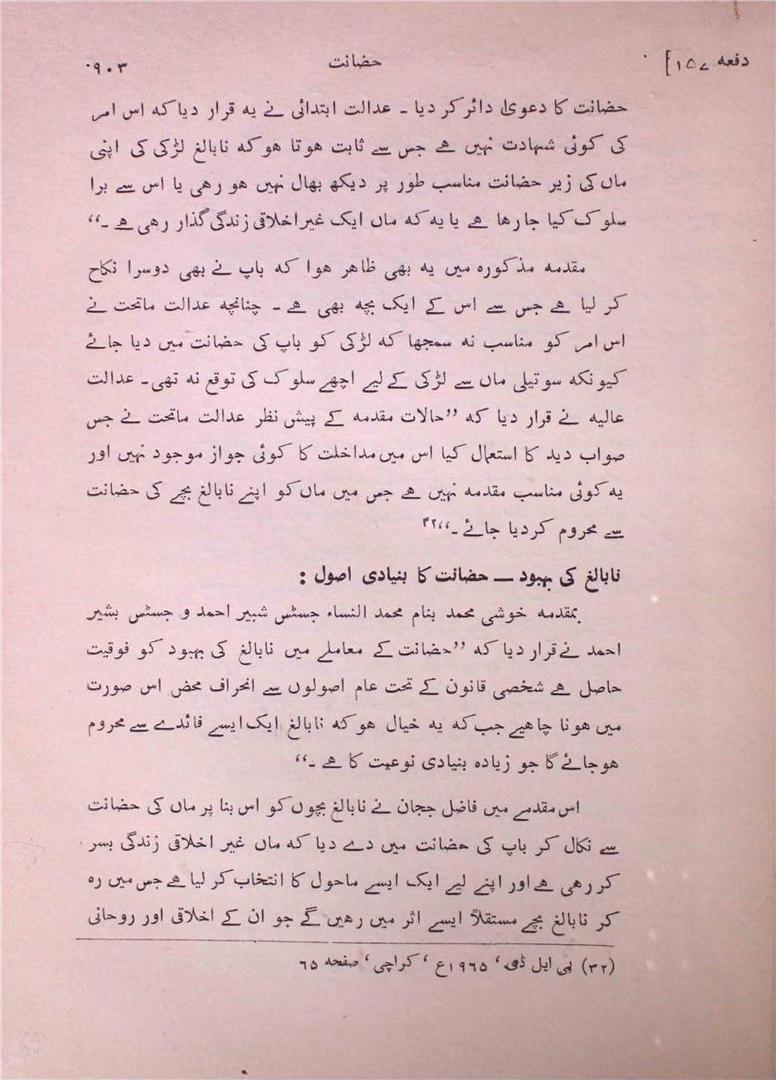 دفعہ ۱۵۷] حضانت ۹۰۳
حضانت کا دعویٰ دائر کر دیا ۔ عدالت ابتدائی نے یہ قرار دیا کہ اس امر
کی کوئی شہادت نہیں ہے جس سے ثابت ہوتا ہو کہ نابالغ لڑکی کی اپنی
ماں کی زیر حضانت مناسب طور پر دیکھ بھال نہیں ہو رہی یا اس سے برا
سلوک کیا جا رہا ہے یا یہ کہ ماں ایک غیر اخلاقی زندگی گذار رہی ہے ۔‘‘
مقدمہ مذکورہ میں یہ بھی ظاہر ہوا کہ باپ نے بھی دوسرا نکاح
کر لیا ہے جس سے اس کے ایک بچہ بھی ہے ۔ چنانچہ عدالت ماتحت نے
اس امر کو مناسب نہ سمجھا کہ لڑکی کو باپ کی حضانت میں دیا جائے
کیونکہ سوتیلی ماں سے لڑکی کے لیے اچھے سلوک کی توقع نہ تھی ۔ عدالت
عالیہ نے قرار دیا کہ ’’حالات مقدمہ کے پیش نظر عدالت ماتحت نے جس
صواب دید کا استعمال کیا اس میں مداخلت کا کوئی جواز موجود نہیں اور
یہ کوئی مناسب مقدمہ نہیں ہے جس میں ماں کو اپنے نابالغ بچے کی حضانت
سے محروم کر دیا جائے ۔‘‘۳۲
نابالغ کی بہبود — حضانت کا بنیادی اصول :
بمقدمہ خوشی محمد بنام محمد النساء جسٹس شبیر احمد و جسٹس بشیر
احمد نے قرار دیا کہ ’’حضانت کے معاملے میں نابالغ کی بہبود کو فوقیت
حاصل ہے شخصی قانون کے تحت عام اصولوں سے انحراف محض اس صورت
میں ہونا چاہیے جب کہ یہ خیال ہو کہ نابالغ ایک ایسے فائدے سے محروم
ہو جائے گا جو زیادہ بنیادی نوعیت کا ہے ۔‘‘
اس مقدمے میں فاضل ججان نے نابالغ بچوں کو اس بنا پر ماں کی حضانت
سے نکال کر باپ کی حضانت میں دے دیا کہ ماں غیر اخلاقی زندگی بسر
کر رہی ہے اور اپنے لیے ایک ایسے ماحول کا انتخاب کر لیا ہے جس میں رہ
کر نابالغ بچے مستقلاً ایسے اثر میں رہیں گے جو ان کے اخلاقی اور روحانی
(۳۲) پی ایل ڈی، ۱۹۶۵ع، کراچی، صفحہ ۶۵